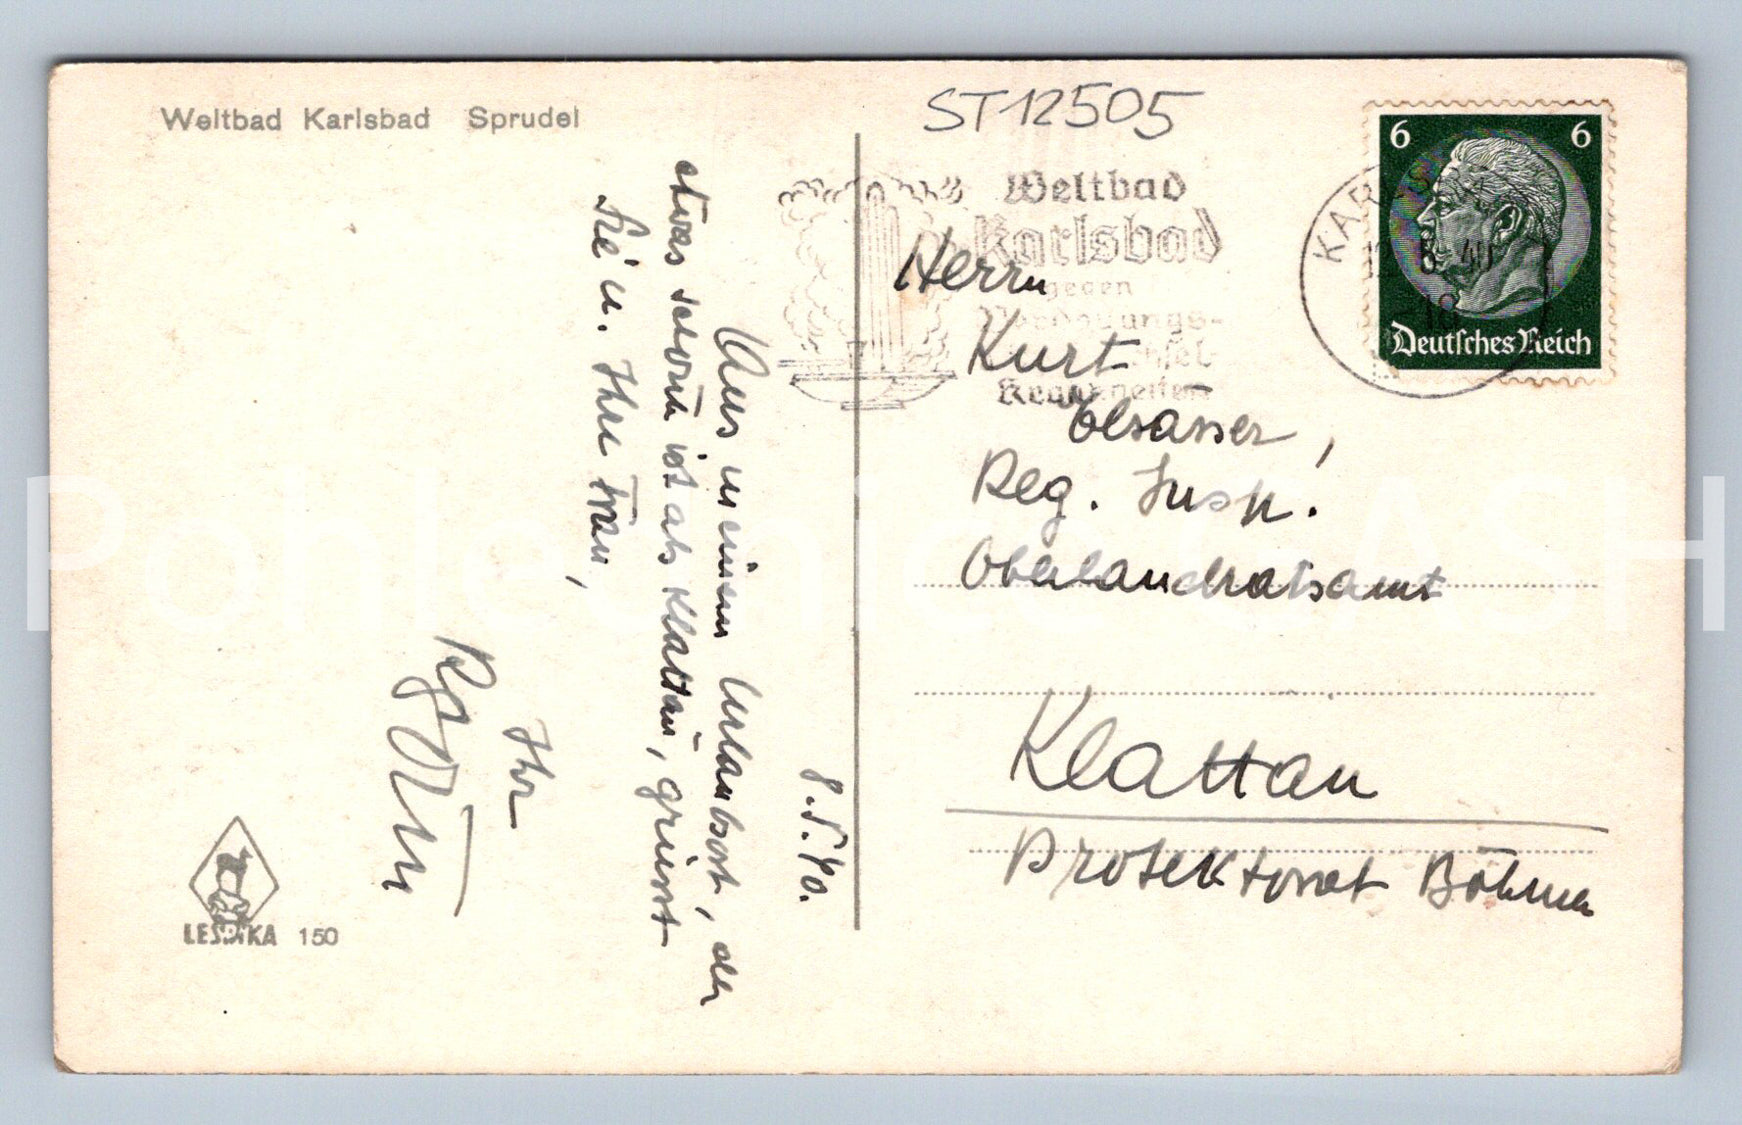 Weltbad Karlsbad Sprudel
8.5.40.
Aus meinem Urlaubsort, der
etwas schöner ist als Klattau, grüsst
Sie u. Ihre Frau,
Ihr
LESIKA 150
ST12505
Weltbad
Karlsbad
gegen
Verdauungs-
Krankheiten
KARLSBAD
6 6
Deutsches Reich
Herrn
Kurt
Elsasser,
Reg. Insp.
Oberlandratsamt
Klattau
Protektorat Böhmen